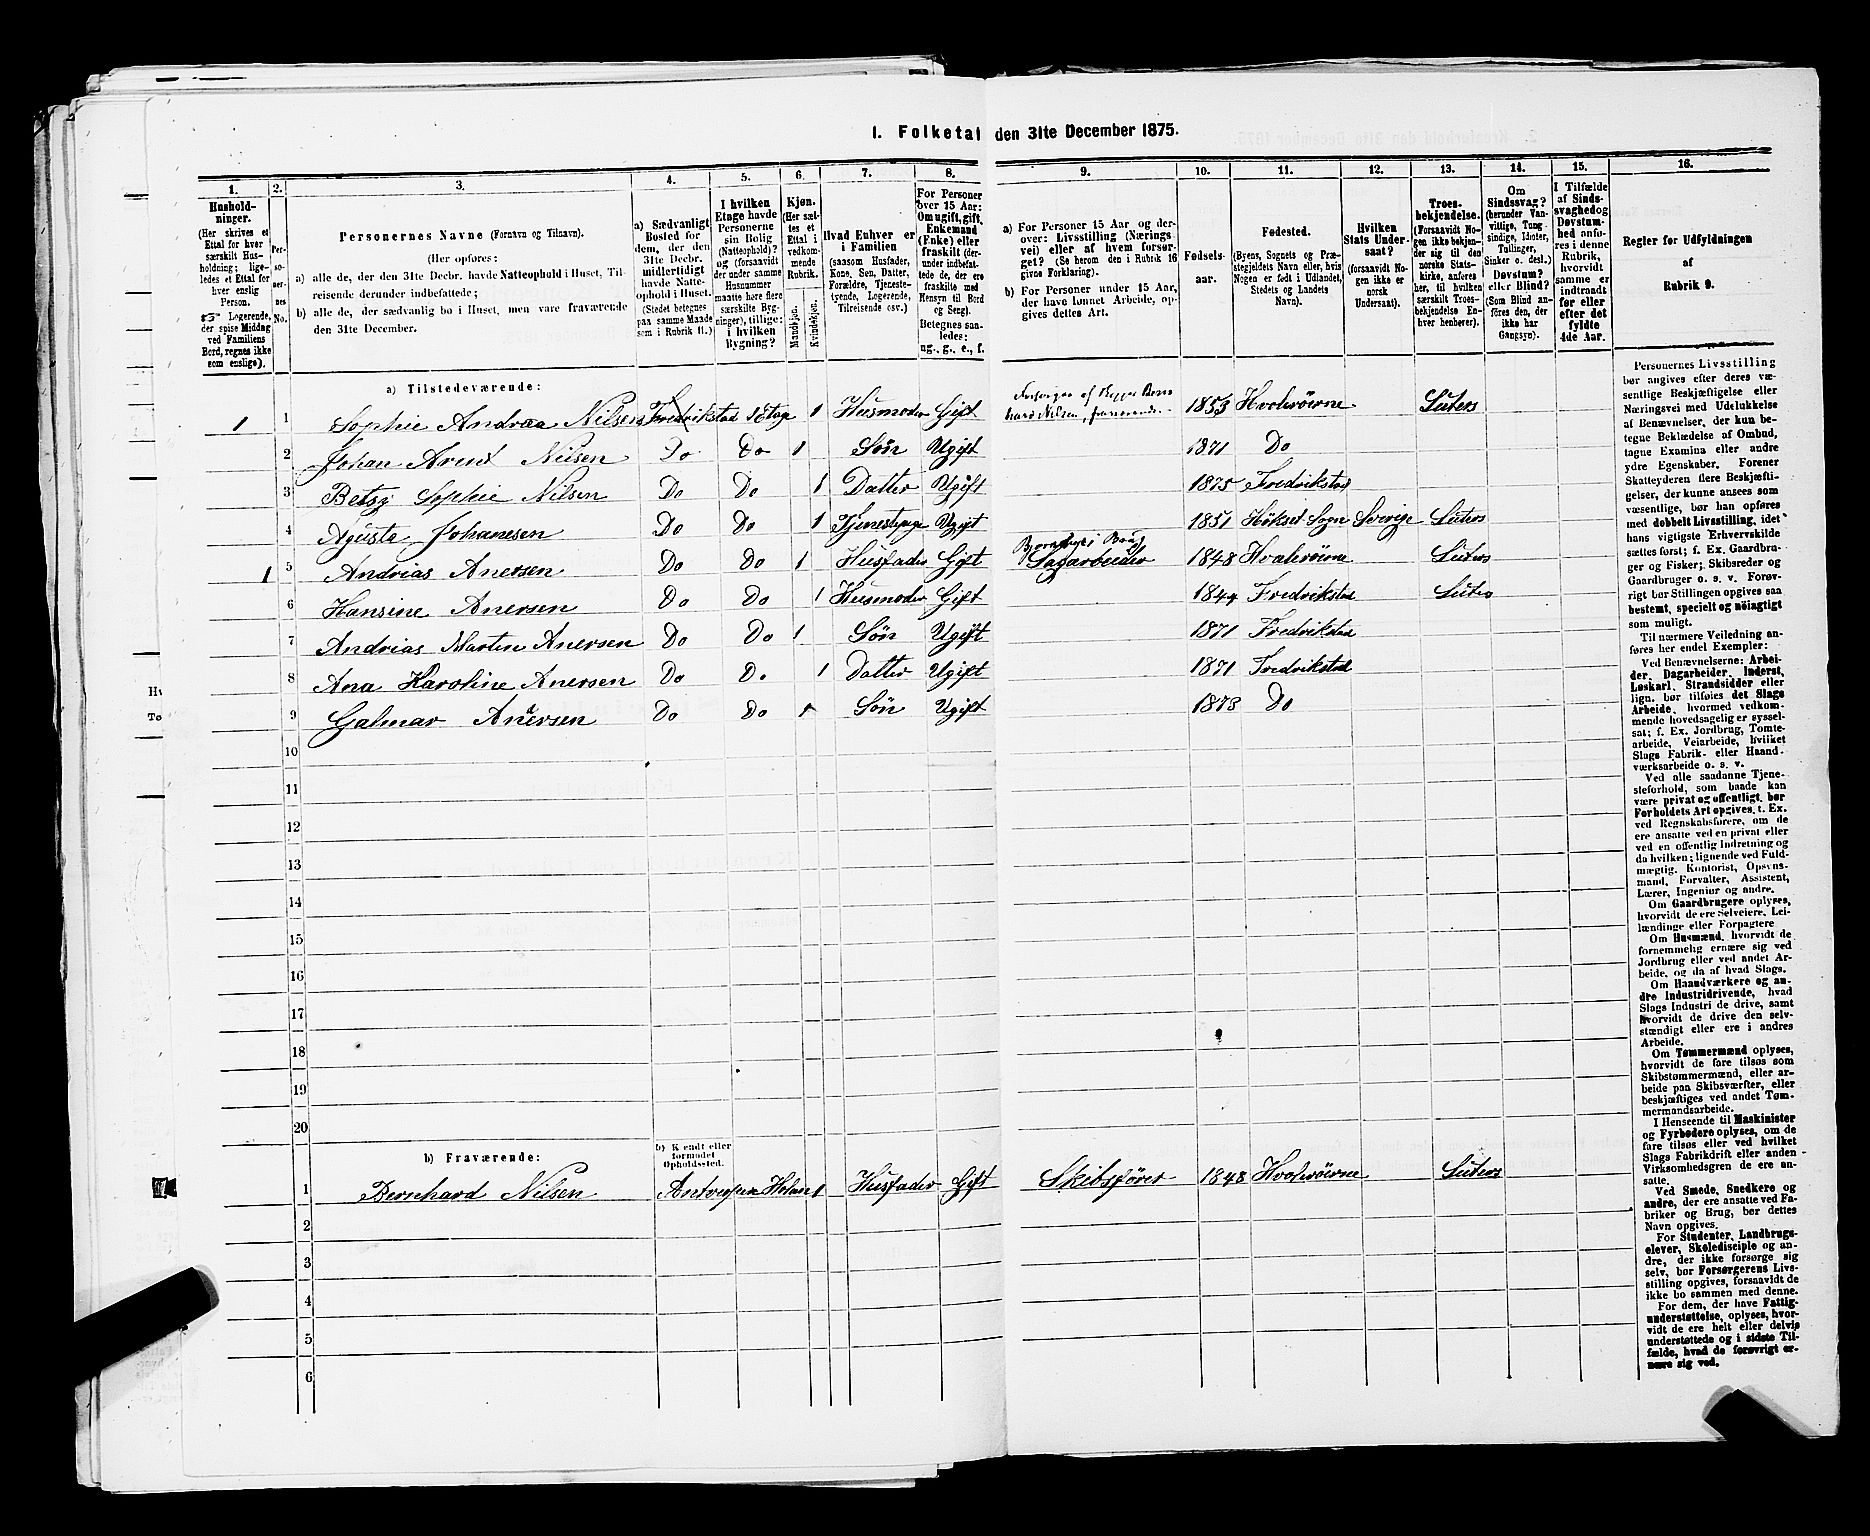 I. Folketal den 31te December 1875.
1. 2. 3. 4. 5. 6. 7. 8. 9. 10. 11. 12. 13. 14. 15. 16.
Husholdninger.
(Her skrives et Ettal for hver særskilt Husholdning; ligeledes et Ettal for hver enslig Person.
Logerende, der spise Middag ved Familiens Bord, regnes ikke som enslige).
Personernes No.
Personernes Navne (Fornavn og Tilnavn).
(Her opføres:
a) alle de, der den 31te Decbr. havde Natteophold i Huset, Tilreisende derunder indbefattede;
b) alle de, der sædvanlig bo i Huset, men vare fraværende den 31te December.
a) Sædvanligt Bosted for dem, der den 31te Decbr. midlertidigt havde Natteophold i Huset. (Stedet betegnes paa samme Maade som i Rubrik 11.)
I hvilken Etage havde Personerne sin Bolig (Natteophold)? og (forsaavidt der under samme Husnummer maatte høre flere særskilte Bygninger), tillige: i hvilken Bygning?
Kjøn. (Her sættes et Ettal i vedkommende Rubrik.
Mandkjøn. Kvindekjøn.
Hvad Enhver er i Familien (saasom Husfader, Kone, Søn, Datter, Forældre, Tjenestetyende, Logerende, Tilreisende osv.)
For Personer over 15 Aar: Om ugift, gift, Enkemand (Enke) eller fraskilt (derunder indbefattede de, der ere fraskilte med Hensyn til Bord og Seng). Betegnes saaledes: ug., g., e., f.
a) For Personer 15 Aar og derover: Livsstilling (Næringsvei) eller af hvem forsørget? (Se herom den i Rubrik 16 givne Forklaring).
b) For Personer under 15 Aar, der have lønnet Arbeide, opgives dettes Art.
Fødselsaar.
Fødested. (Byens, Sognets og Præstegjeldets Navn eller, hvis Nogen er født i Udlandet, Stedets og Landets Navn).
Hvilken Stats Undersaat? (forsaavidt Nogen ikke er norsk Undersaat).
Troesbekjendelse. (Forsaavidt Nogen ikke bekjender sig til den norske Statskirke, anføres her, til hvilken særskilt Troesbekjendelse Enhver henhører).
Om Sindssvag? (herunder Vanvittige, Tungsindige, Idioter, Tullinger, Sinker o. desl.). Døvstum? eller Blind? (Som Blind anføres den, der ikke har Gangsyn).
I Tilfælde af Sindssvaghed og Døvstumhed anføres i denne Rubrik, hvorvidt samme er indtraadt før eller efter det fyldte 4de Aar.
Regler for Udfyldningen af Rubrik 9.
a) Tilstedeværende:
1 1 Sophie Andrea Nilsen Fredrikstad 1 Etage 1 Husmoder Gift 1853 Hvaløerne Luters
2 Johan Arent Nilsen Do Do 1 Søn Ugift 1871 Do
3 Betsy Sophie Nilsen Do Do 1 Datter Ugift 1875 Fredrikstad
4 Agusta Johanesen Do Do 1 Ugift 1851 Sogn Sverige Luters
1 5 Andrias Anersen Do Do 1 Husfader Gift Sagarbeider 1848 Hvaløerne Luters
6 Hansine Anersen Do Do 1 Husmoder Gift 1844 Fredrikstad Luters
7 Andrias Martin Anersen Do Do 1 Søn Ugift 1871 Fredrikstad
8 Ana Karoline Anersen Do Do 1 Datter Ugift 1871 Fredrikstad
9 Galmar Anersen Do Do 1 Søn Ugift 1873 Do
10
11
12
13
14
15
16
17
18
19
20
b) Fraværende:
b) Kjendt eller formodet Opholdssted.
1 Bernhard Nilsen Antverpen 1 Husfader Gift Skibsfører 1848 Hvaløerne Luters
2
3
4
5
6
Personernes Livsstilling
bør angives efter deres væ-
sentlige Beskjæftigelse eller
Næringsvei med Udelukkelse
af Benævnelser, der kun be-
tegne Beklædelse af Ombud,
tagne Examina eller andre
ydre Egenskaber. Forener
Skatteyderen flere Beskjæfti-
gelser, der kunne ansees som
væsentlige, bør han opføres
med dobbelt Livsstilling, idet
hans vigtigste Erhvervskilde
sættes først; f. Ex. Gaardbru-
ger og Fisker; Skibsreder og
Gaardbruger o. s. v. Forøv-
rigt bør Stillingen opgives saa
bestemt, specielt og nøiagtigt
som muligt.
Til nærmere Veiledning an-
føres her endel Exempler:
Ved Benævnelserne: Arbei-
der, Dagarbeider, Inderst,
Løskarl, Strandsidder eller
lign. bør tilføies det Slags
Arbeide, hvormed vedkom-
mende hovedsagelig er syssel-
sat; f. Ex. Jordbrug, Tomte-
arbeide, Veiarbeide, hvilket
Slags Fabrik- eller Haand-
værksarbeide o. s. v.
Ved alle saadanne Tjene-
steforhold, som baade kan
være privat og offentligt, bør
Forholdets Art opgives, t. Ex.
ved Regnskabsførere, om de
ere ansatte ved en privat eller
ved en offentlig Indretning og
da hvilken; lignende ved Fuld-
mægtig, Kontorist, Opsyns-
mand, Forvalter, Assistent,
Lærer, Ingeniør og andre.
Om Gaardbrugere oplyses,
hvorvidt de ere Selveiere, Lei-
lændinge eller Forpagtere
Om Husmænd, hvorvidt de
fornemmelig ernære sig ved
Jordbrug eller ved andet Ar-
beide, og da af hvad Slags.
Om Haandværkere og an-
dre Industridrivende, hvad
Slags Industri de drive, samt
hvorvidt de drive den selv-
stændigt eller ere i andres
Arbeide.
Om Tømmermænd oplyses,
hvorvidt de fare tilsøs som
Skibstømmermænd, eller ar-
beide paa Skibsværfter, eller
beskjæftiges ved andet Tøm-
mermandsarbeide.
I Henseende til Maskinister
og Fyrbødere oplyses, om de
fare tilsøs eller ved hvilket
Slags Fabrikdrift eller anden
Virksomhedsgren de ere an-
satte.
Ved Smede, Snedkere og
andre, der ere ansatte ved Fa-
briker og Brug, bør dettes
Navn opgives.
For Studenter, Landbrugs-
elever, Skoledisciple og an-
dre, der ikke forsørge sig
selv, bør Forsørgerens Livs-
stilling opgives, forsaavidt de
ikke bo sammen med denne.
For dem, der have Fattig-
understøttelse, oplyses, hvor-
vidt de ere helt eller delvis
understøttede og i sidste Til-
fælde, hvad de forøvrigt er-
nære sig ved.